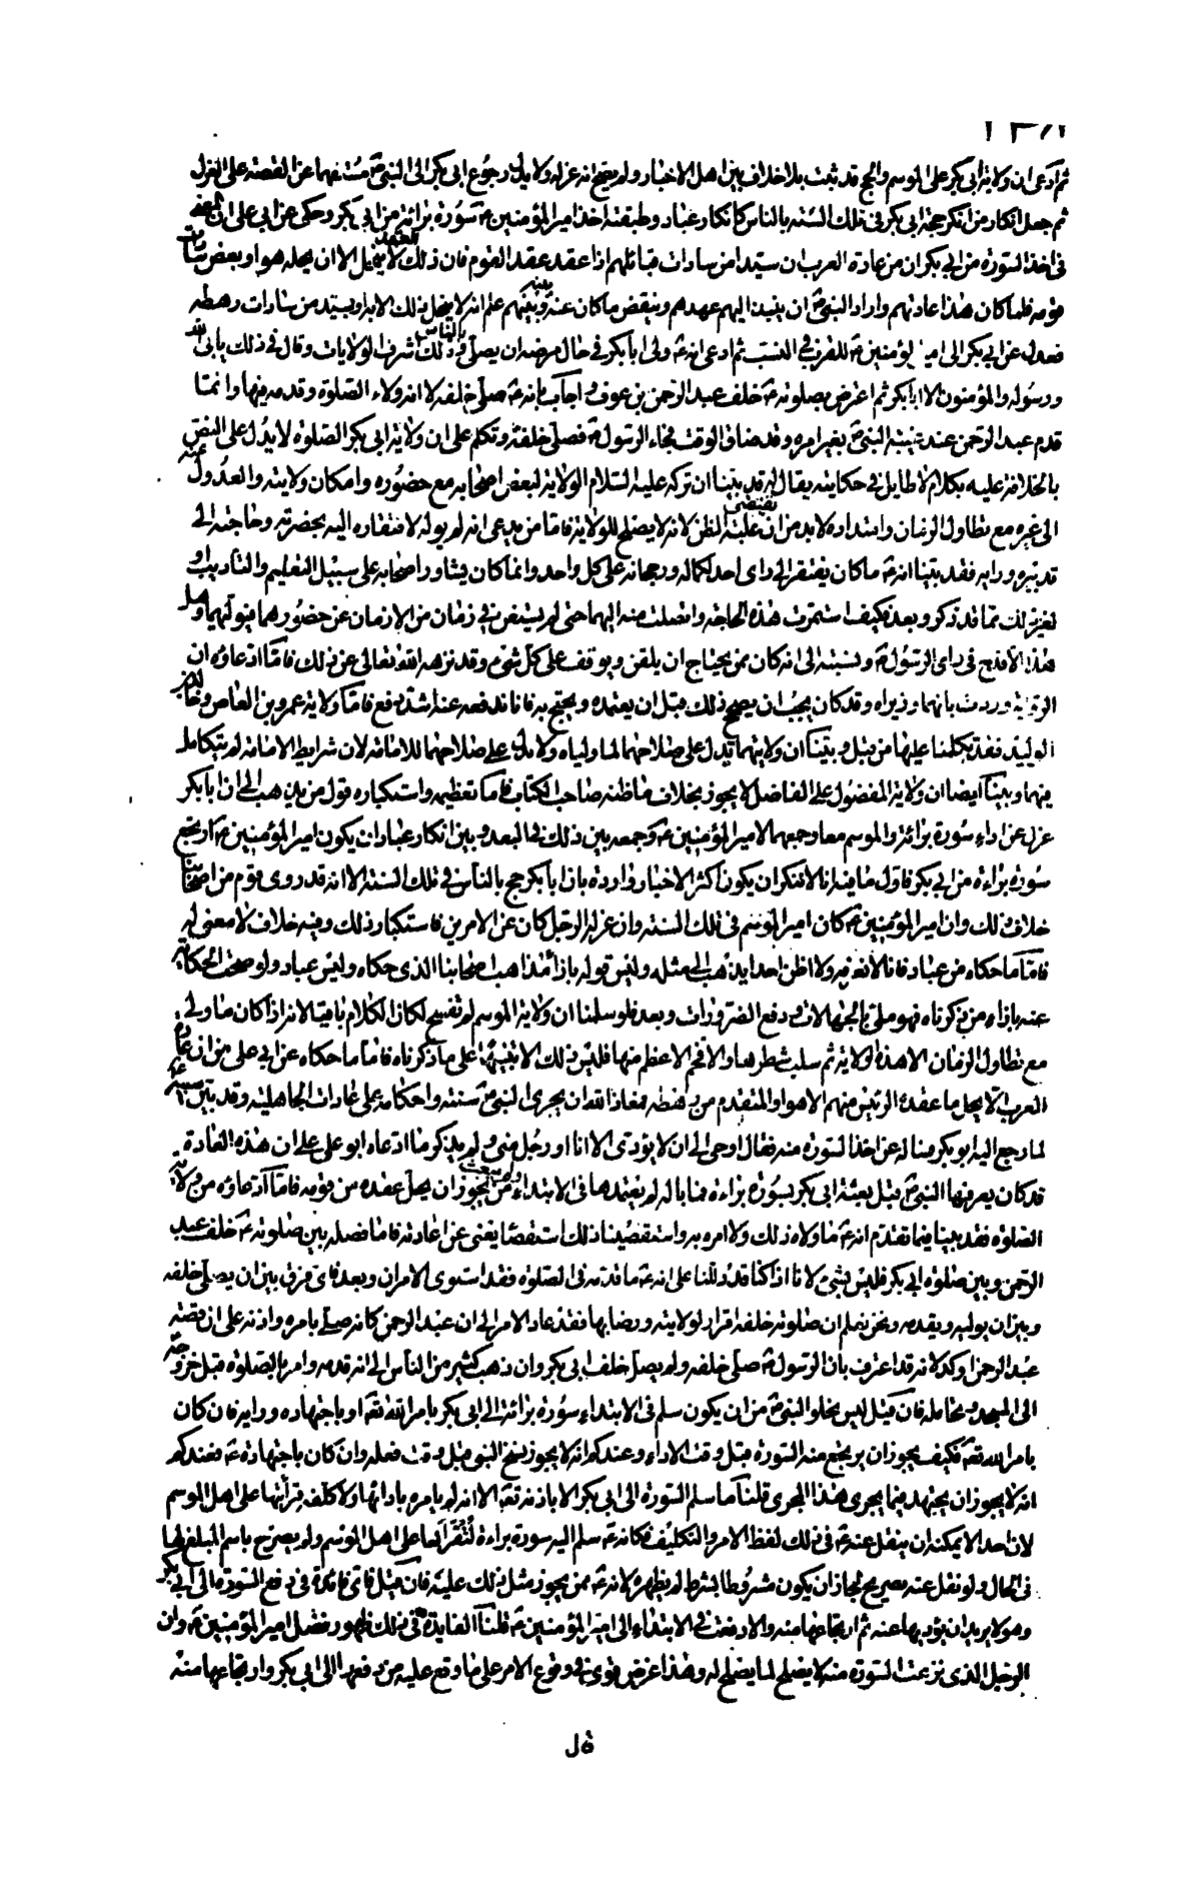 ثم ادعى ان ولاية ابي بكر على الموسم والحج قد ثبت بلا خلاف بين اهل الاخبار ولم يصح انه عزله ولا يدل رجوع ابي بكر الى النبي ص مستفهما عن القصة على العزل
ثم جعل انكار من انكر حج ابي بكر في تلك السنة بالناس كانكار عباد وطبقته اخذ امير المؤمنين ع سورة براءة من ابي بكر وحكى عن ابي على ان المعنى
في اخذ السورة من ابي بكر ان من عادة العرب ان سيدا من سادات قبائلهم اذا عقد عقد القوم فان ذلك العقد لا ينحل الا ان يحله هو او بعض سادات
قومه فلما كان هذا عادتهم واراد النبي ص ان ينبذ اليهم عهدهم وينقض ما كان بينه وبينهم علم انه لا ينحل ذلك الا به او بسيد من سادات رهطه
فعدل عن ابي بكر الى امير المؤمنين ع للقرب في النسب ثم ادعى انه ع ولى ابا بكر في حال مرضه ان يصلى بالناس وذلك شرف الولايات وقال في ذلك يابى الله
ورسوله والمؤمنون الا ابا بكر ثم اعترض بصلوته ع خلف عبد الرحمن بن عوف واجاب بانه ع صلى خلفه لا انه ولاه الصلوة وقدمه فيها وانما
قدم عبد الرحمن عند غيبة النبي ص بغير امره وقد ضاق الوقت فجاء الرسول ص فصلى خلفه وتكلم على ان ولاية ابي بكر الصلوة لا يدل على النص
بالخلافة عليه بكلام لا طايل في حكايته يقال له قد بينا ان تركه عليه السلام الولاية لبعض اصحابه مع حضوره وامكان ولايته والعدول عنه
الى غيره مع تطاول الزمان وامتداده لا بد من ان يقتضى غلبة الظن لانه لا يصلح للولاية فاما من يدعى انه لم يوله لافتقاره اليه بحضرته وحاجته الى
تدبيره ورايه فقد بينا انه ع ما كان يفتقر الى راى احد لكماله ورجحانه على كل واحد وانما كان يشاور اصحابه على سبيل التعليم والتاديب او
لغير ذلك مما قد ذكر وبعد فكيف استمرت هذه الحاجة واتصلت منه اليهما حتى لم يستغن في زمان من الازمان عن حضورهما فيوليهما وهل
هذا الا قدح في راى الرسول ص ونسبته الى انه كان ممن يحتاج ان يلقن ويوقف على كل شيء وقد نزهه الله تعالى عن ذلك فاما ادعاؤه ان
الرواية وردت بانهما وزيراه وقد كان يجب ان يصحح ذلك قبل ان يعتمده ويحتج به فانا ندفعه عنه اشد دفع فاما ولاية عمرو بن العاص وخالد بن
الوليد فقد تكلمنا عليها من قبل وبينا ان ولايتهما تدل على صلاحهما لما ولياه ولا يدل على صلاحهما للامامة لان شرايط الامامة لم يتكامل
فيهما وبينا ايضا ان ولاية المفضول على الفاضل لا يجوز بخلاف ما ظنه صاحب الكتاب فاما تعظيمه واستكباره قول من يذهب الى ان ابا بكر
عزل عن اداء سورة براءة والموسم معا وجمعه الامير المؤمنين ع وجمعه بين ذلك في البعد وبين انكار عباد ان يكون امير المؤمنين ع ارتجع
سورة براءة من ابي بكر فاول ما فيه انا لا ننكر ان يكون اكثر الاخبار واردة بان ابا بكر حج بالناس في تلك السنة الا انه قد روى قوم من اصحابنا
خلاف ذلك وان امير المؤمنين ع كان امير الموسم في تلك السنة وان عزل الرجل كان عن الامرين فاستكبار ذلك وفيه خلاف لا معنى له
فاما ما حكاه عن عباد فانا لا نعرفه ولا اظن احدا يذهب الى مثله وليس قوله بازاء مذاهب اصحابنا الذى حكاه وليس عباد ولو صحت الحكاية
عنه بازاء من ذكرناه فهو ملئ بالجهالات ودفع الضرورات وبعد فلو سلمنا ان ولاية الموسم لم تفسخ لكان الكلام باقيا لانه اذا كان ما ولى
مع تطاول الزمان الا هذه الولاية ثم سلب شطرها والافخم الاعظم منها فليس ذلك الا تنبيها على ما ذكرناه فاما ما حكاه عن ابي على من ان عادة
العرب الا يحل ما عقده الرئيس منهم الا هو او المتقدم من رهطه فمعاذ الله ان يجرى النبي ص سنته واحكامه على عادات الجاهلية وقد بين ع السبب
لما رجع اليه ابو بكر فساله عن اخذ السورة منه فقال اوحى الى ان لا يؤدى الا انا او رجل منى ولم يذكر ما ادعاه ابو على على ان هذه العادة
قد كان يعرفها النبي ص قبل بعثه ابي بكر بسورة براءة فما باله لم يعتمدها في الابتداء ولم يبعث من يجوز ان يحل عقده من قومه فاما ادعاؤه من ولاية
الصلوة فقد بينا فيما تقدم انه ع ما ولاه ذلك ولا امره به واستقصينا ذلك استقصاء يغنى عن اعادته فاما فصله بين صلوته ع خلف عبد
الرحمن وبين صلوة ابي بكر فليس بشيء لانا اذا كنا قد دللنا على انه ع ما قدمه في الصلوة فقد استوى الامران وبعد فاى فرق بين ان يصلى خلفه
وبين ان يوليه ويقدمه ونحن نعلم ان صلوته خلفه اقرار لولايته ورضا بها فقد عاد الامر الى ان عبد الرحمن كانه صلى بامره واذنه على ان قصة
عبد الرحمن اوكد لانه قد اعترف بان الرسول ص صلى خلفه ولم يصل خلف ابي بكر وان ذهب كثير من الناس الى انه قدمه وامره بالصلوة قبل خروجه
الى المسجد وتحامله فان قيل ليس يخلو النبي ص من ان يكون سلم في الابتداء سورة براءة الى ابي بكر بامر الله تعه او باجتهاده ورايه فان كان
بامر الله تعه فكيف يجوز ان يرتجع منه السورة قبل وقت الاداء وعندكم انه لا يجوز نسخ الشيء قبل وقت فعله وان كان باجتهاده ع فعندكم
انه لا يجوز ان يجتهد فيما يجرى هذا المجرى قلنا ما سلم السورة الى ابي بكر الا باذنه تعه الا انه لم يامره بادائها ولا كلفه قرأتها على اهل الموسم
لان احدا لا يمكنه ان ينقل عنه ع في ذلك لفظ الامر والتكليف فكانه ع سلم اليه سورة براءة لتقرأ بها على اهل الموسم ولم يصرح باسم المبلغ لها
في الحال ولو نقل عنه تصريح لجاز ان يكون مشروطا بشرط لم يظهره لانه ع ممن يجوز مثل ذلك عليه فان قيل فاى فائدة في دفع السورة الى ابي بكر
وهو لا يريد ان يؤديها عنه ثم ارتجاعها منه والا دفعت في الابتداء الى امير المؤمنين ع قلنا الفايدة في ذلك ظهور فضل امير المؤمنين ع وان
الرجل الذى نزعت السورة منه لا يصلح لما يصلح له وهذا غرض قوى في وقوع الامر على ما وقع عليه من دفعها الى ابي بكر وارتجاعها منه